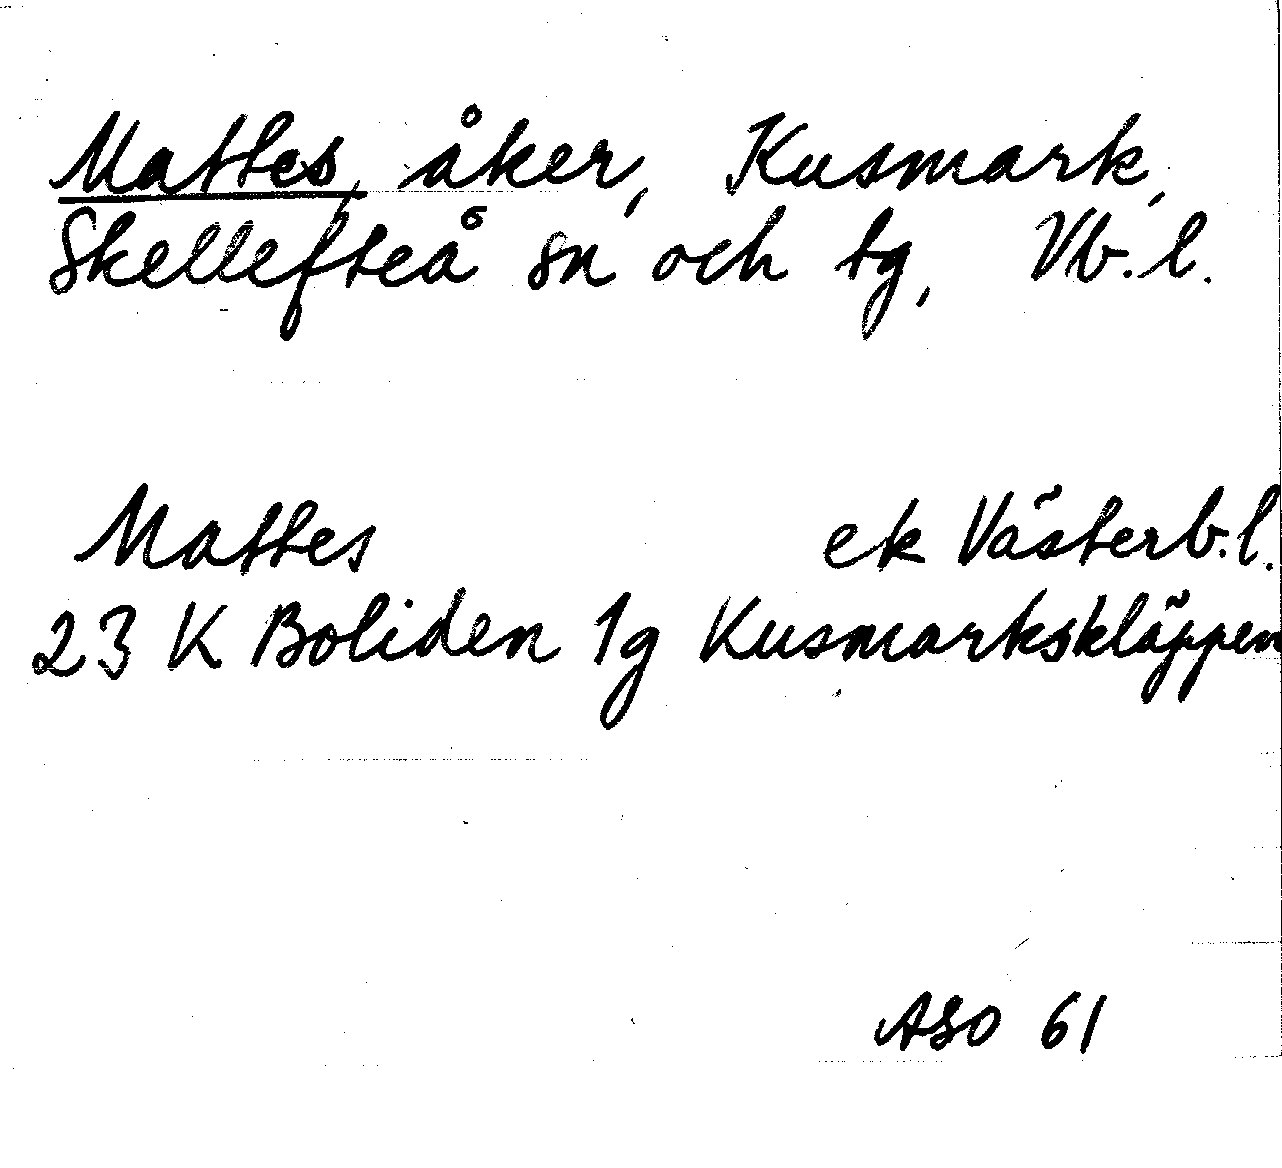 Mattes, åker, Kusmark,
Skellefteå sn och tg, Vb.l.
Mattes ek Västerb.l.
23 K Boliden 1g Kusmarkskläppen
ASO 61